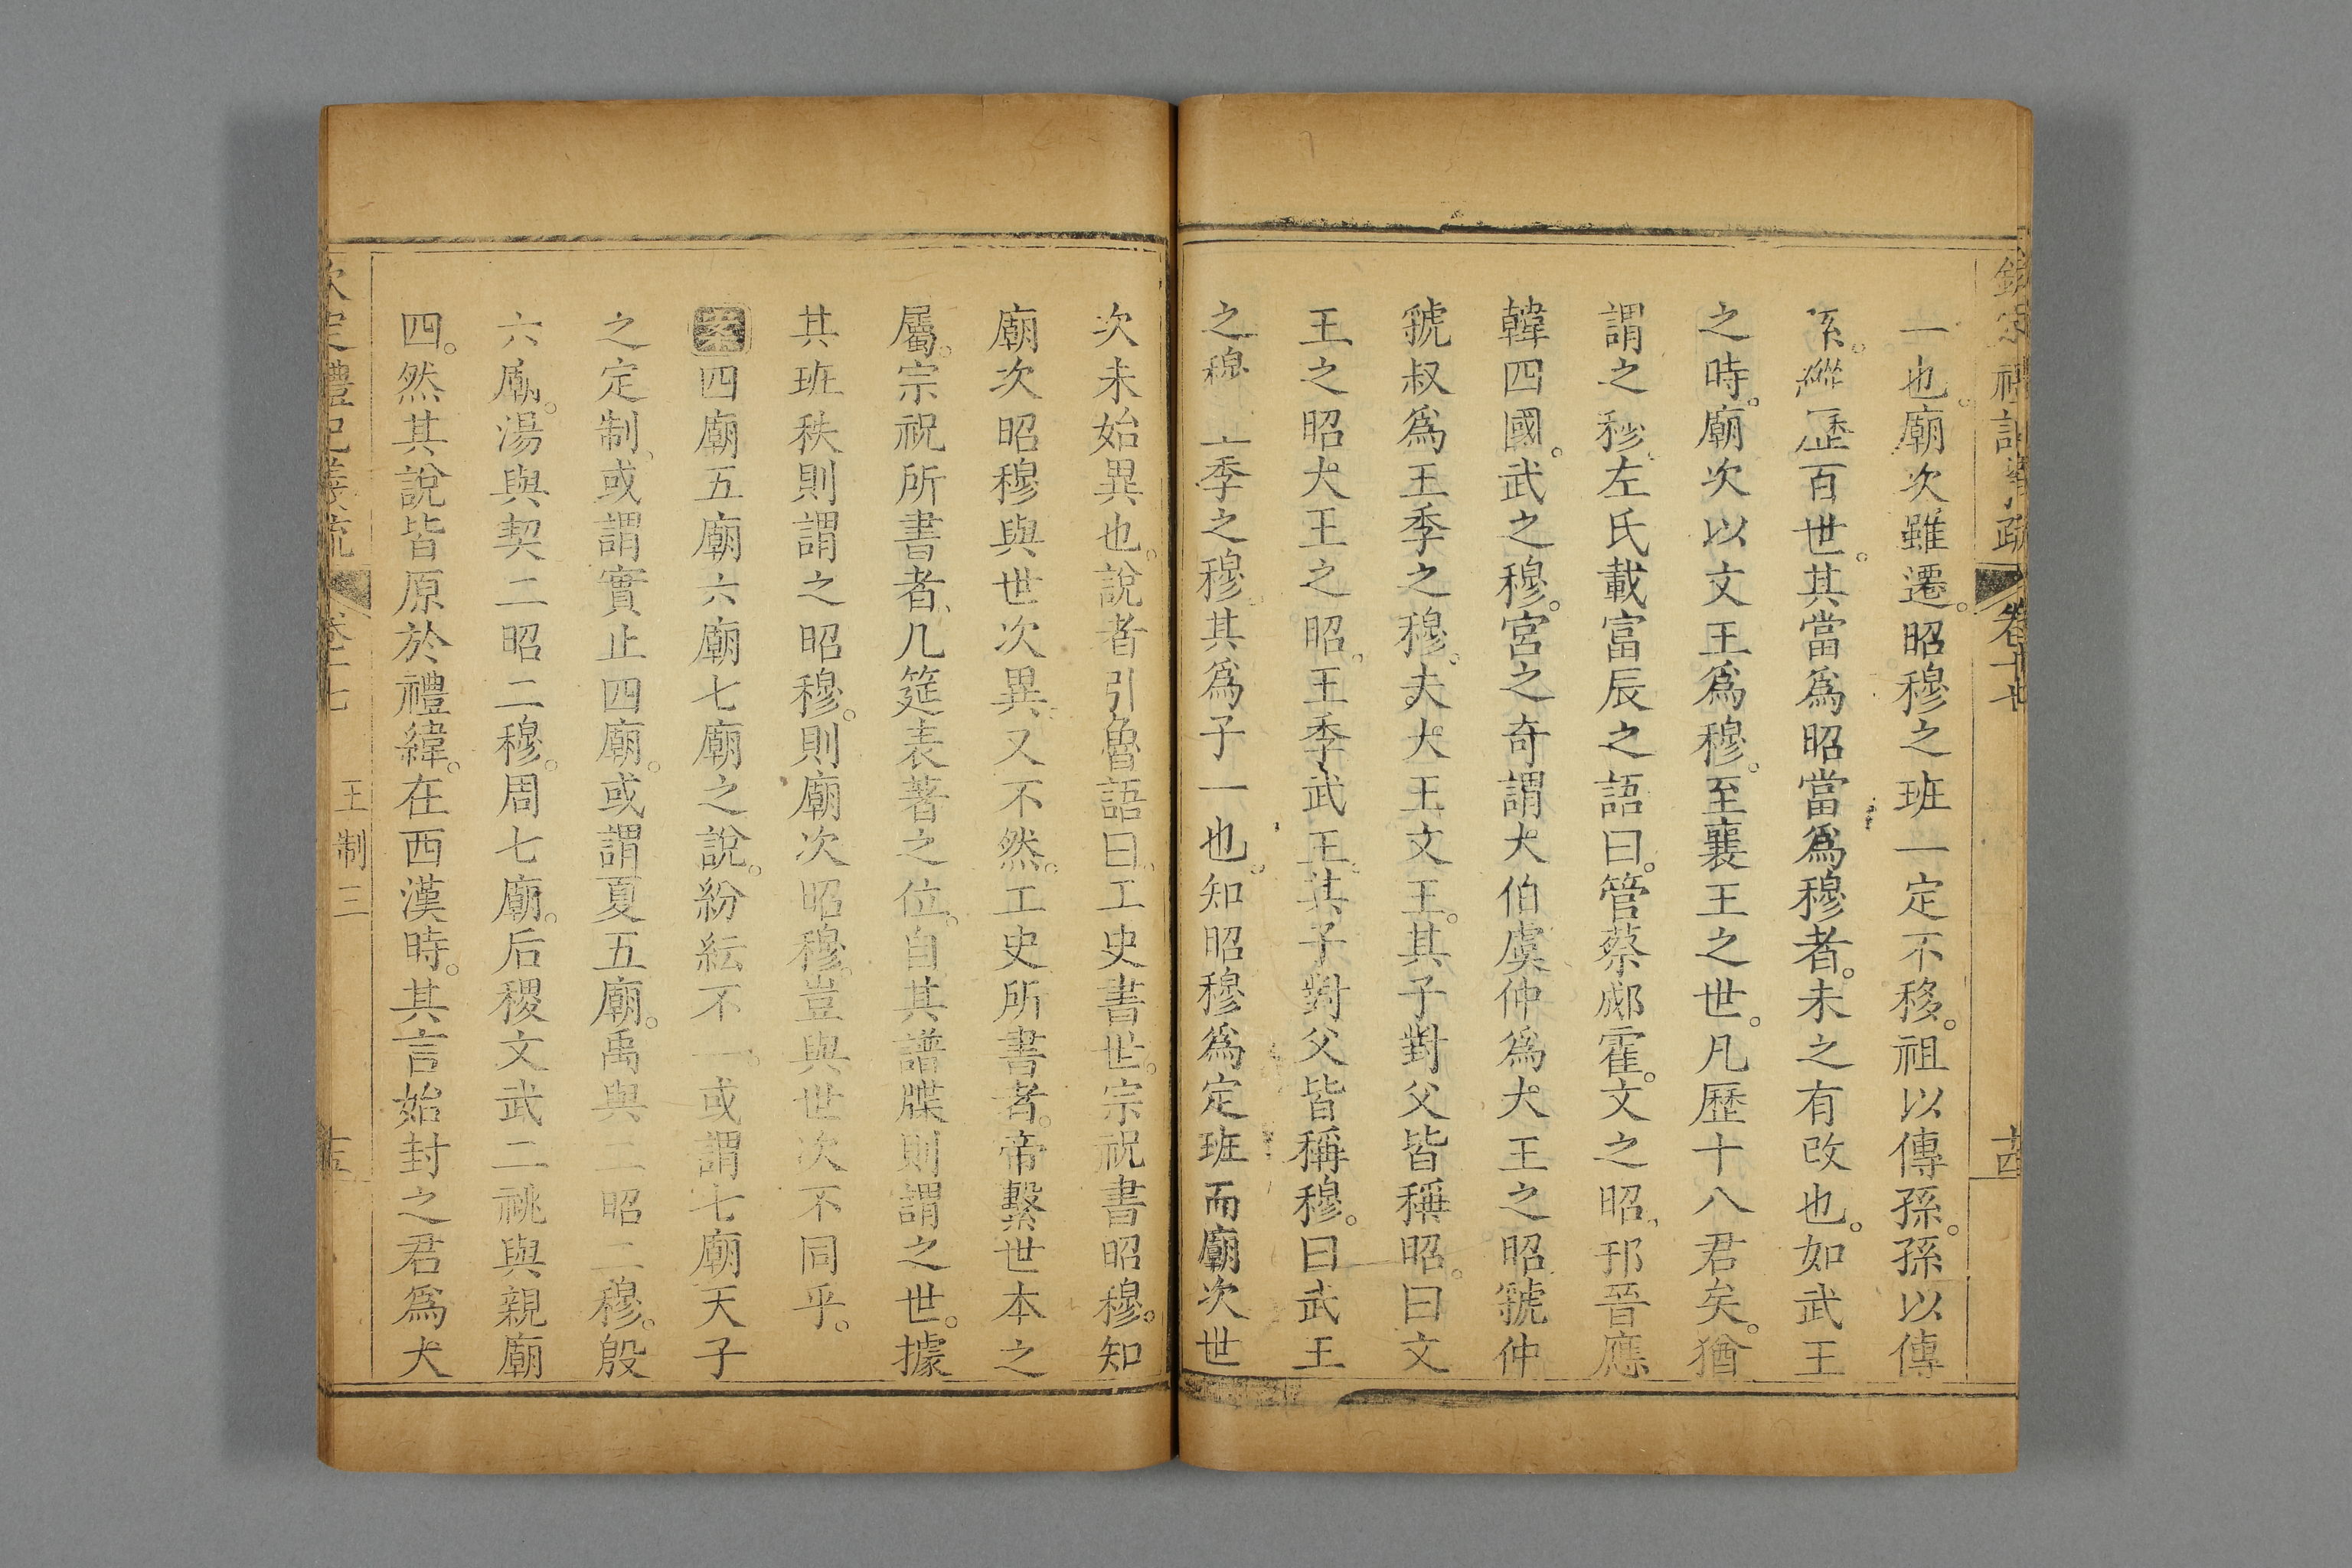 一也。廟次雖遷。昭穆之班一定不移。祖以傳孫。孫以傳
系。縱歷百世。其當爲昭當爲穆者。未之有改也。如武王
之時。廟次以文王爲穆。至襄王之世。凡歷十八君矣。猶
謂之穆、左氏載富辰之語曰。管蔡郕霍。文之昭、邘晉應
韓四國。武之穆。宮之奇謂大伯虞仲爲大王之昭、虢仲
虢叔爲王季之穆。夫大王文王。其子對父皆稱昭。曰文
王之昭、大王之昭。王季武王。其子對父皆稱穆。曰武王
之穆 王季之穆。其爲子一也。知昭穆爲定班而廟次世
次未始異也。說者引魯語曰。工史書世。宗祝書昭穆。知
廟次昭穆與世次異、又不然。工史所書者。帝繫世本之
屬。宗祝所書者、几筵表著之位。自其譜牒則謂之世。據
其班秩則謂之昭穆。則廟次昭穆。豈與世次不同乎。
案四廟五廟六廟七廟之說。紛紜不一。或謂七廟天子
之定制、或謂實止四廟。或謂夏五廟。禹與二昭二穆。殷
六廟。湯與契二昭二穆。周七廟。后稷文武二祧與親廟
四。然其說皆原於禮緯。在西漢時。其言始封之君爲大
卷十七
十四
欽定禮記義疏
卷十七
王制三
十五